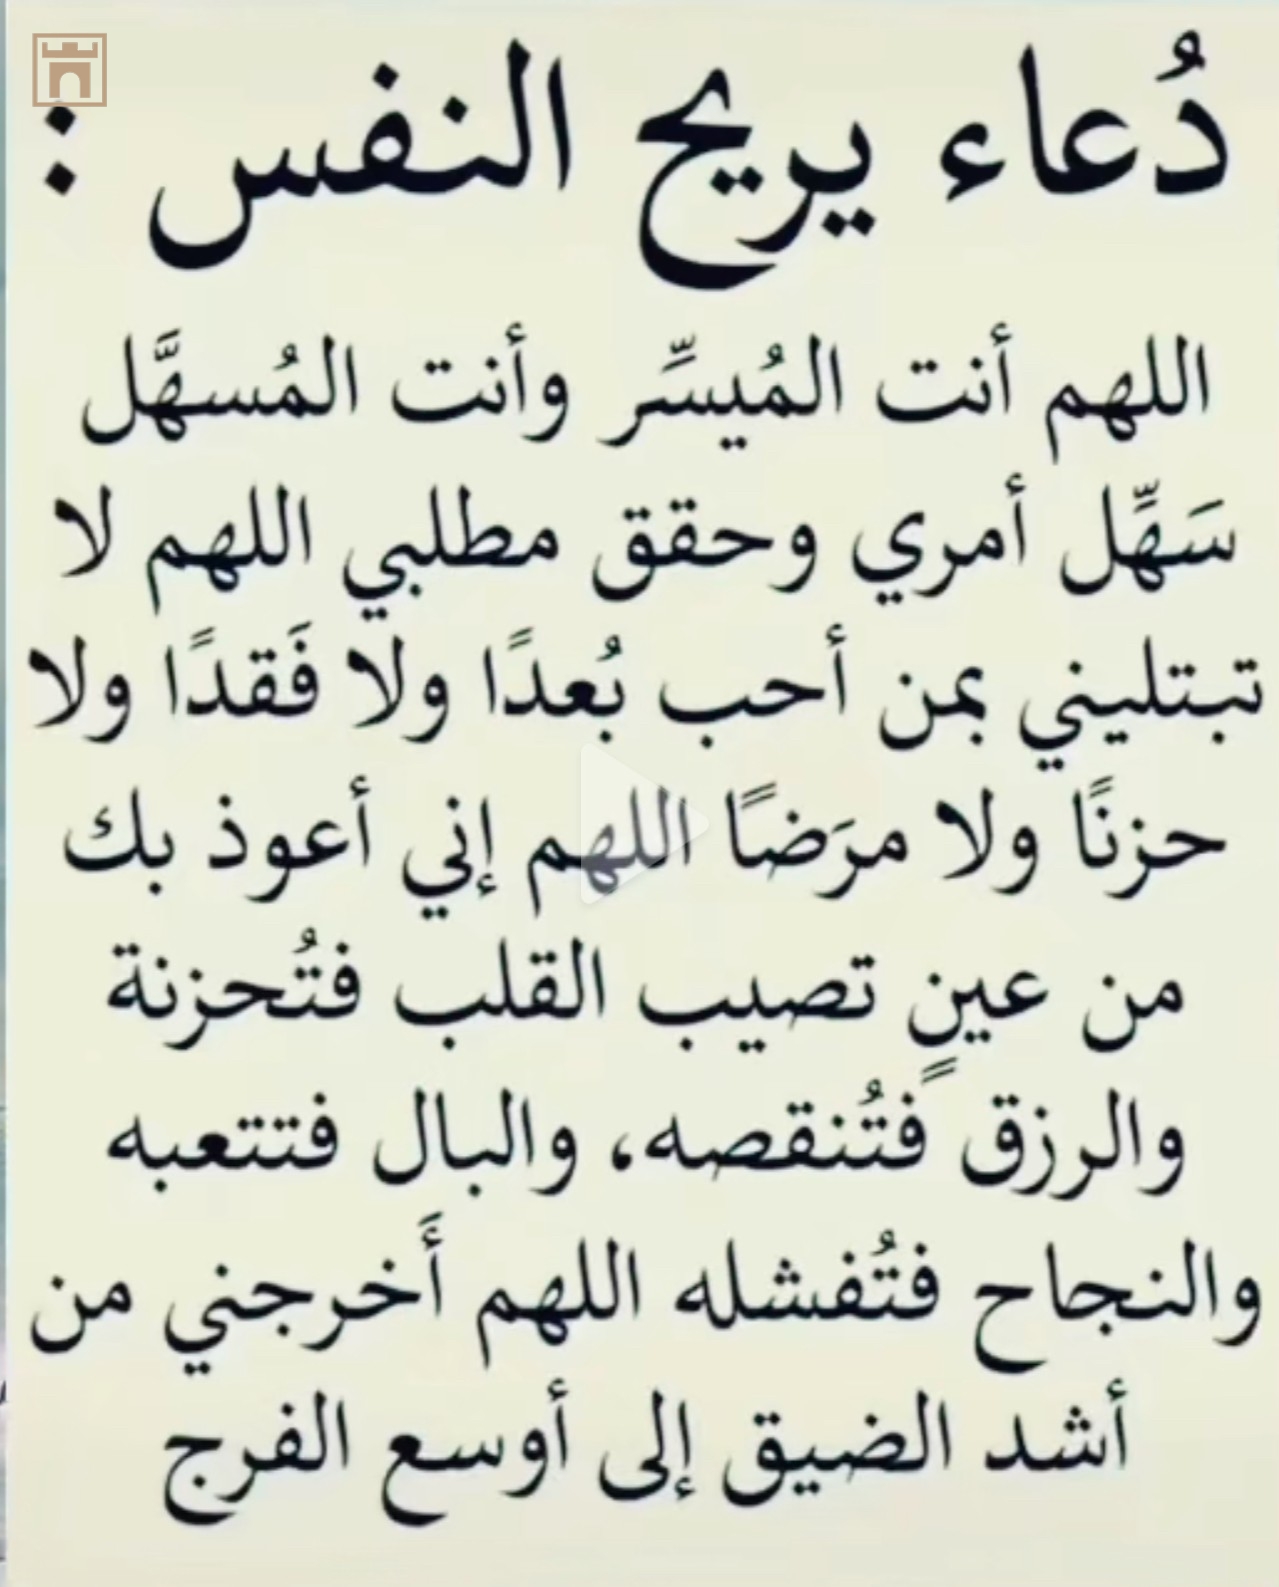 دُعاء يريح النفس :
اللهم أنت المُيسِّر وأنت المُسهَّل
سَهِّل أمري وحقق مطلبي اللهم لا
تبتليني بمن أحب بُعدًا ولا فَقدًا ولا
حزنًا ولا مرَضًا اللهم إني أعوذ بك
من عينٍ تصيب القلب فتُحزنة
والرزق فتُنقصه، والبال فتتعبه
والنجاح فتُفشله اللهم أَخرجني من
أشد الضيق إلى أوسع الفرج